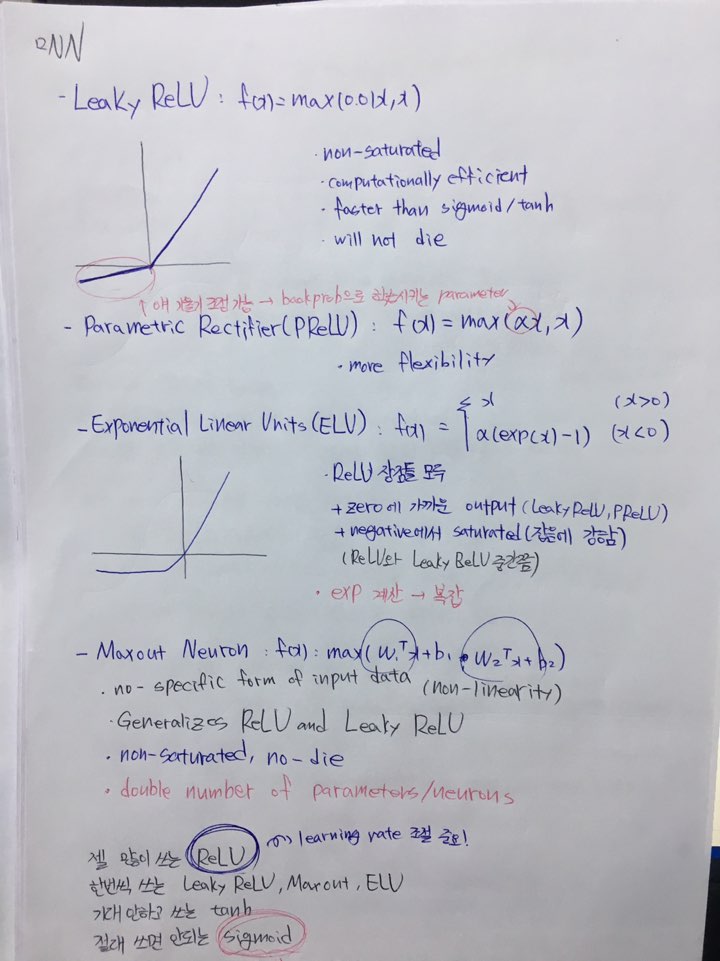 NN
- Leaky ReLU : f(x) = max(0.01x, x)
· non-saturated
· computationally efficient
· faster than sigmoid/tanh
· will not die
↑ 얘 기울기 조절 가능 → backprob으로 학습시키는 parameter
- Parametric Rectifier(PReLU) : f(x) = max(αx, x)
· more flexibility
- Exponential Linear Units(ELU) : f(x) = { x (x>0)
α(exp(x)-1) (x<0)
· ReLU 장점들 모두
+ zero에 가까운 output (Leaky ReLU, PReLU)
+ negative에서 saturated (잡음에 강함)
(ReLU와 Leaky ReLU 중간쯤)
· exp 계산 → 복잡
- Maxout Neuron : f(x) : max(w₁ᵀx+b₁, w₂ᵀx+b₂)
· no-specific form of input data (non-linearity)
· Generalizes ReLU and Leaky ReLU
· non-saturated, no-die
· double number of parameters/neurons
젤 많이 쓰는 ReLU ~> learning rate 조절 중요!
한번씩 쓰는 Leaky ReLU, Maxout, ELU
기대 안하고 쓰는 tanh
절대 쓰면 안되는 sigmoid